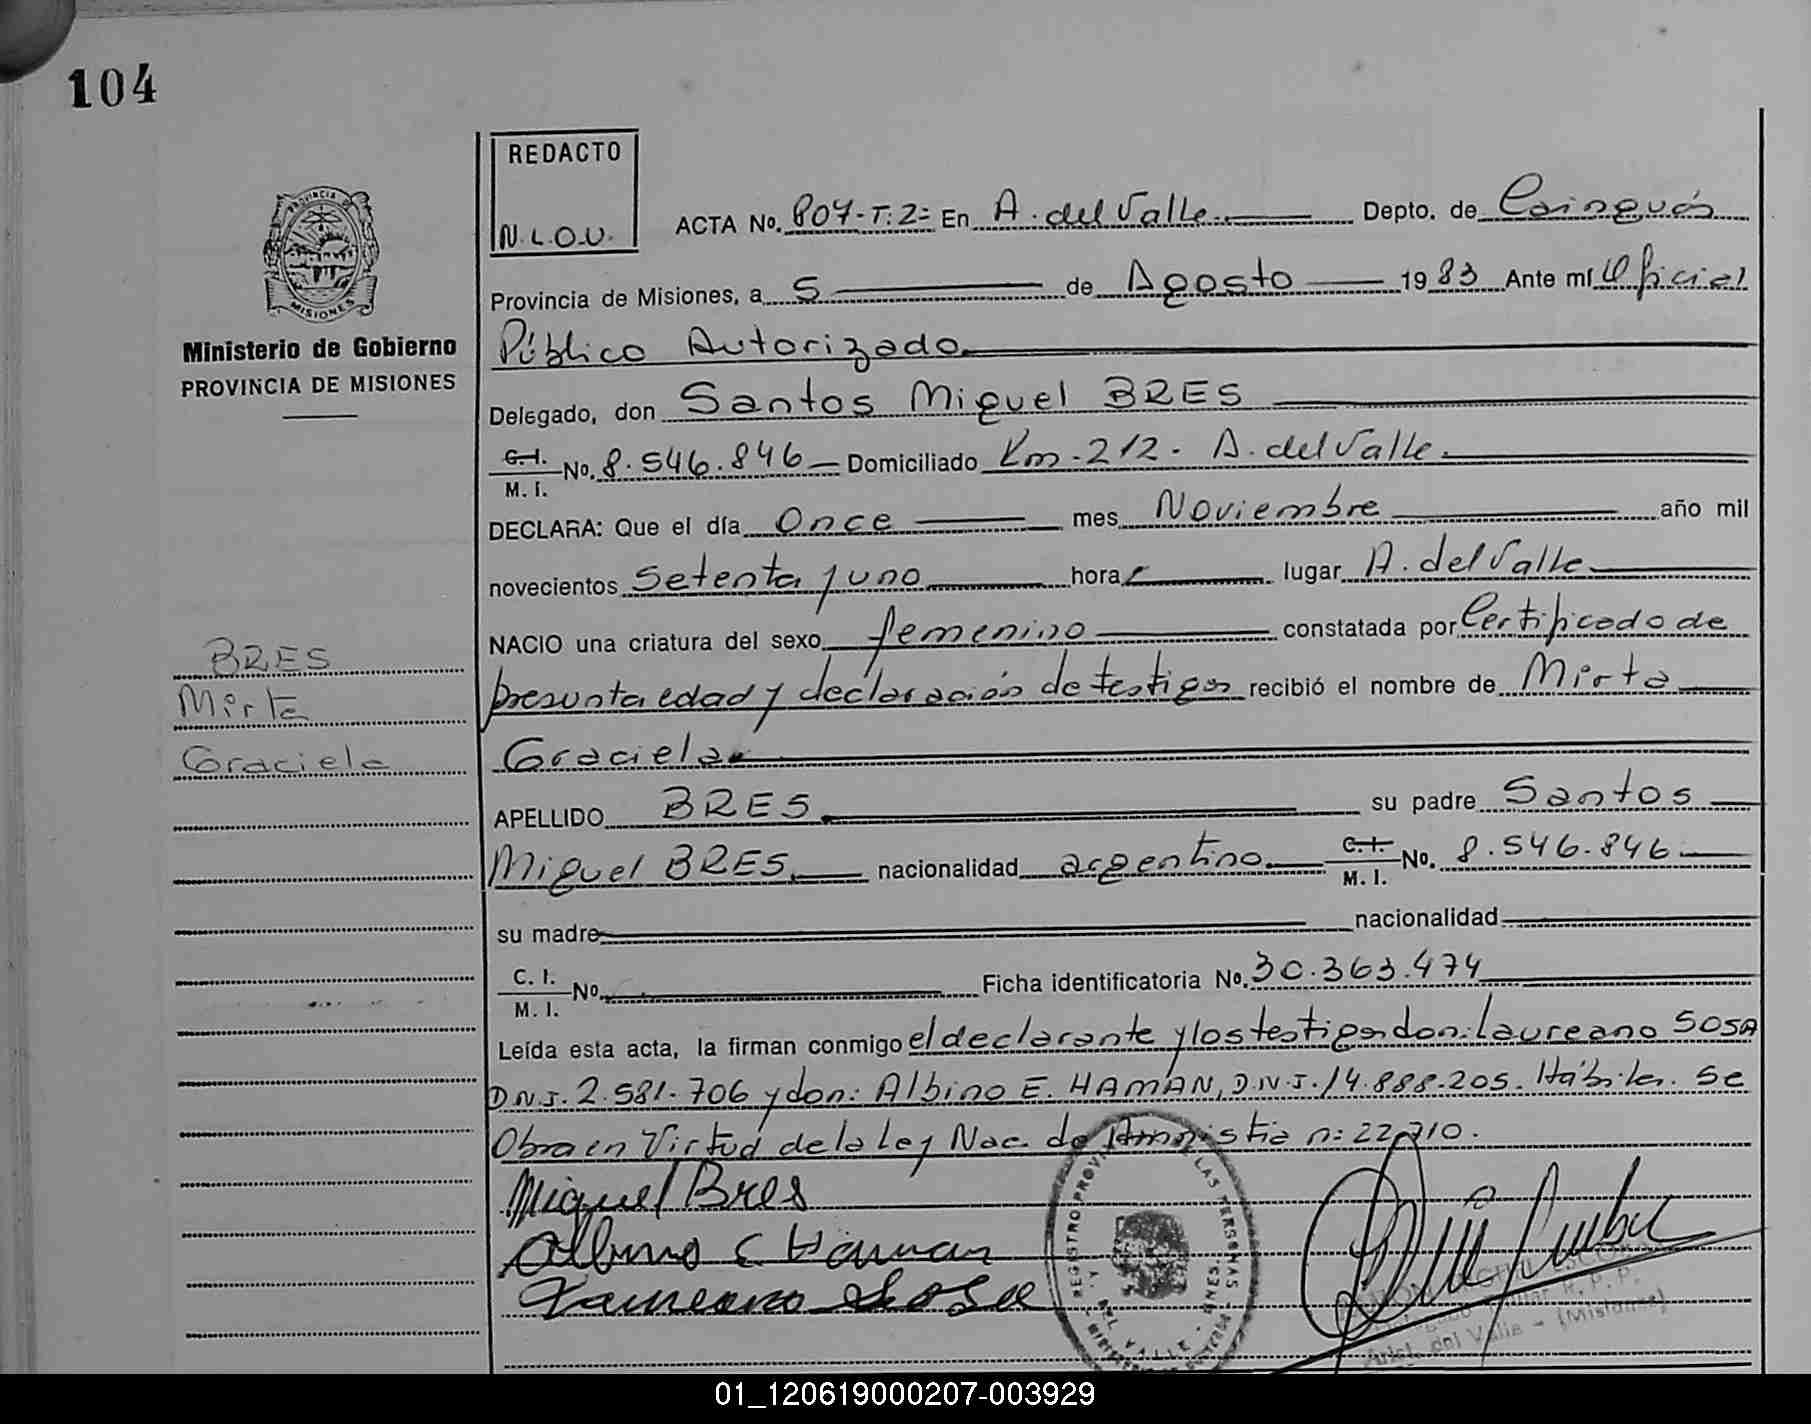 104
REDACTO
N.L.O.V.
ACTA No. 807-T:2= En A. del Valle Depto. de Cainguás
Provincia de Misiones, a 5 de Agosto 1983 Ante mí Oficial
Ministerio de Gobierno
PROVINCIA DE MISIONES
Público Autorizado
Delegado, don Santos Miguel BRES
C.I. M.I. No. 8.546.846 Domiciliado Km. 212. A. del Valle.
DECLARA: Que el día Once mes Noviembre año mil
novecientos Setenta y uno hora lugar A. del Valle
NACIO una criatura del sexo femenino constatada por Certificado de
presunta edad y declaración de testigos recibió el nombre de Mirta
Graciela
BRES
Mirta
Graciela
APELLIDO BRES su padre Santos
Miguel BRES nacionalidad argentino C.I. M.I. No. 8.546.846
su madre nacionalidad
C.I. M.I. No. Ficha identificatoria No. 30.363.474
Leída esta acta, la firman conmigo el declarante y los testigos don: Laureano SOSA
D.N.I. 2.581.706 y don: Albino E. HAMAN, D.N.I. 14.888.205. Hábiles. Se
Obra en Virtud de la Ley Nac. de Amnistia n: 22.710.
Miguel Bres
Albino E Haman
Laureano Sosa
REGISTRO PROV. DE LAS PERSONAS
DEL VALLE
Arist. del Valle - (Misiones)
01_120619000207-003929